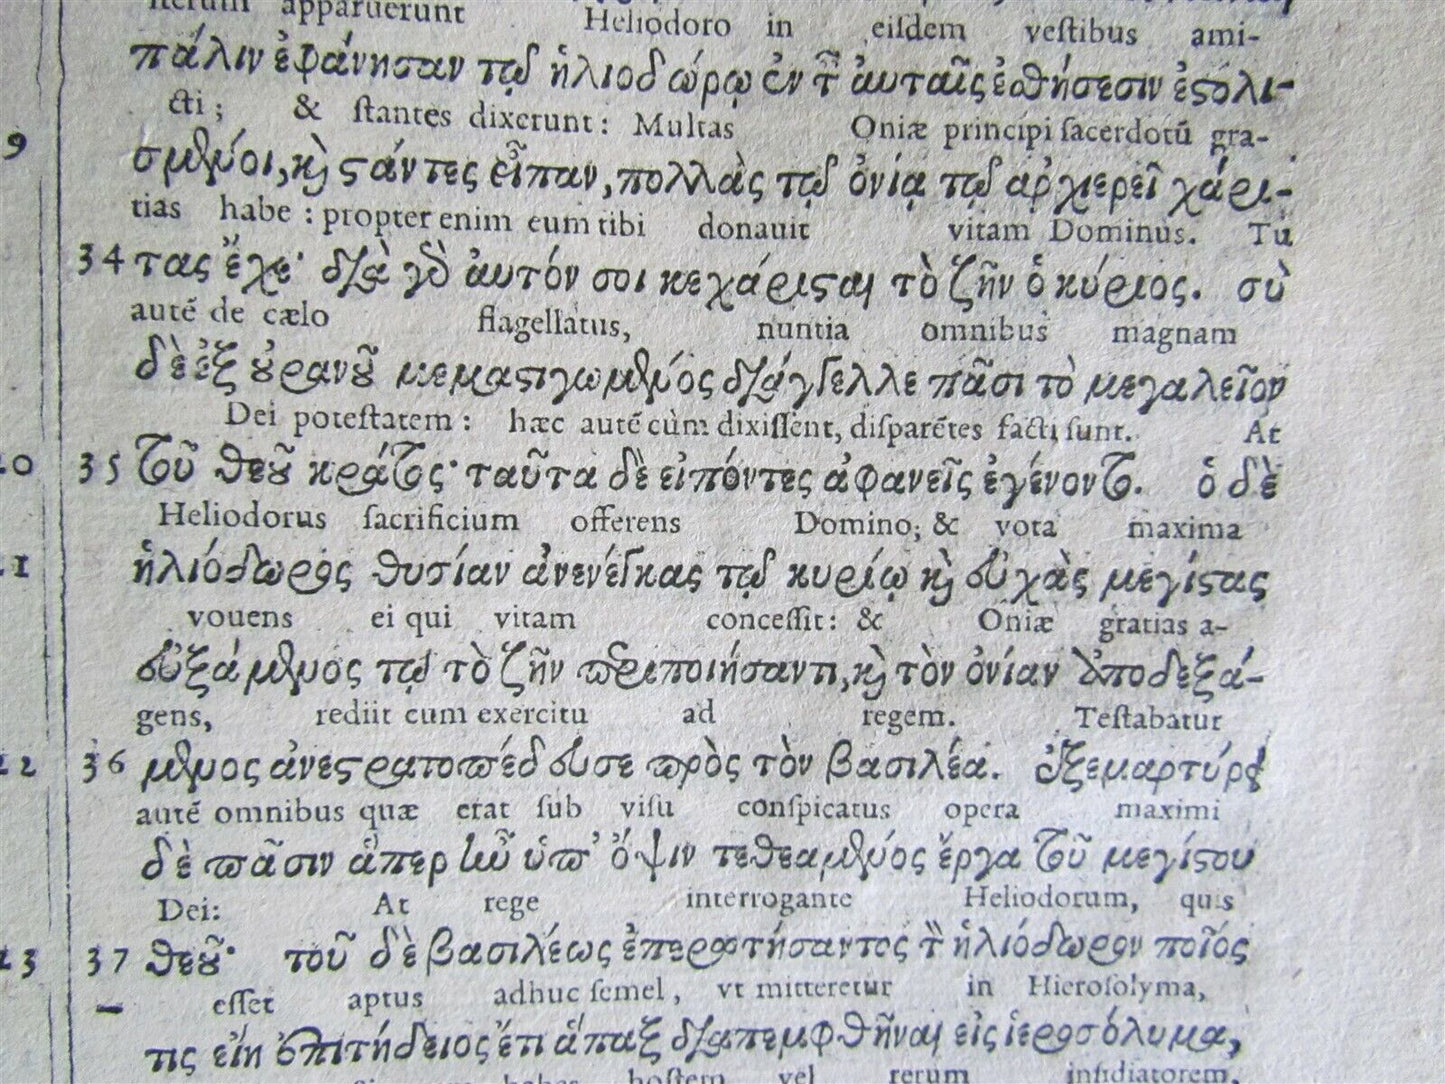 apparuerunt Heliodoro in eiſdem veſtibus ami-
πάλιν ἐφάνησαν τῷ ἡλιοδώρῳ ἐν τ̑ αὐταῖς ἐσθήσεσιν ἐϛολι-
cti ; & ſtantes dixerunt : Multas Oniæ principi ſacerdotũ gra-
9 σμένοι, κỳ ϛάντες εἶπαν, πολλὰς τῷ ὀνίᾳ τῷ ἀρχιερεῖ χάρι-
tias habe : propter enim eum tibi donauit vitam Dominus. Tu
34 τας ἔχε· διὰ γὸ αὐτόν σοι κεχάριϛαι τὸ ζῆν ὁ κύριος. σὺ
autẽ de cælo flagellatus, nuntia omnibus magnam
δὲ ἐξ ȣ̓ρανȣ͂ μεμαϛιγωμένος διάγγελλε πᾶσι τὸ μεγαλεῖον
Dei poteſtatem : hæc autẽ cùm dixiſſent, diſparẽtes facti ſunt. At
35 τοῦ θεȣ͂ κράτος· ταῦτα δὲ εἰπόντες ἀφανεῖς ἐγένοντο. ὁ δὲ
Heliodorus ſacrificium offerens Domino; & vota maxima
ἡλιόδωρος θυσίαν ἀνενέγκας τῷ κυρίῳ κỳ εὐχὰς μεγίϛας
vouens ei qui vitam conceſſit : & Oniæ gratias a-
εὐξάμενος τῷ τὸ ζῆν περιποιήσαντι, κỳ τὸν ὀνίαν ἀποδεξά-
gens, rediit cum exercitu ad regem. Teſtabatur
36 μενος ἀνεϛρατοπέδευσε πρὸς τὸν βασιλέα. ἐξεμαρτύρει
autẽ omnibus quæ erat ſub viſu conſpicatus opera maximi
δὲ πᾶσιν ἅπερ ἦν ὑπ’ ὄψιν τεθεαμένος ἔργα τοῦ μεγίϛου
Dei: At rege interrogante Heliodorum, quis
37 θεȣ͂· τοῦ δὲ βασιλέως ἐπερωτήσαντος τ̀ ἡλιόδωρον ποῖός
eſſet aptus adhuc ſemel, vt mitteretur in Hieroſolyma,
τις εἴη ἐπιτήδειος ἔτι ἅπαξ διαπεμφθῆναι εἰς ἱεροσόλυμα,
habes hoſtem vel rerum inſidiatorem,